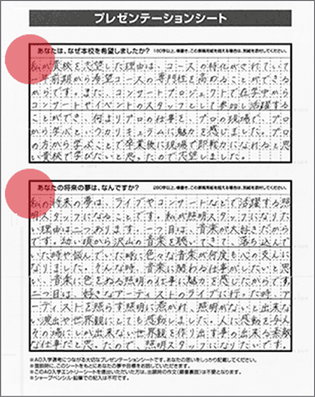 プレゼンテーションシート
あなたは、なぜ本校を希望しましたか?
私が貴校を志望した理由は、コースの特化がされていて
一年前期から希望コースの専門性を高めることができる
からです。また、コンサートプロジェクトで在学中から
コンサートやイベントのスタッフとして参加し活躍する
ことができ、何よりプロの仕事を、プロの現場で、プロ
から学べるというカリキュラムに魅力を感じました。プロ
の方から学ぶことで卒業後に現場で即戦力になれると思
い貴校で学びたいと思ったので志望しました。
あなたの将来の夢は、なんですか?
私の将来の夢は、ライブやコンサートなどで活躍する照
明スタッフになることです。私が照明スタッフになりた
い理由は二つあります。一つ目は、音楽が大好きだから
です。幼い頃から沢山の音楽を聴いてきて、落ち込んで
いた時や悩んでいた時に色々な音楽が何度も心の支えに
なりました。そんな時、音楽に関わる仕事がしたいと思
い、音楽に色どねる照明の仕事に魅力を感じたからです。
二つ目は、好きなアーティストのライブに行った時、アー
ティストを照らす照明に惹かれ、照明がないと出来な
い演出や世界観にとても感動しました。人に感動を与え
その場にしか出来ない世界観を作り出す事の出来る素敵
な仕事だと思たので、照明スタッフになりたいです。
※AO入学選考につながる大切なプレゼンテーションシートです。あなたの思いをしっかり記載してください。
※面談時に、このシートをもとにあなたの夢や目標をお話してください。
※このAO入学エントリーシートを提出いただいた方は、出願時の作文(願書裏面)は不要となります。
※シャープペンシル・鉛筆での記入は不可です。